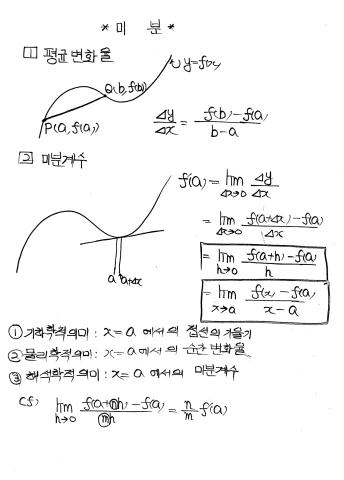 * 미 분 *
① 평균변화율
y=f(x)
Q(b, f(b))
P(a, f(a))
Δy/Δx = (f(b)-f(a))/(b-a)
② 미분계수
f'(a) = lim Δx→0 Δy/Δx
= lim Δx→0 (f(a+Δx)-f(a))/Δx
= lim h→0 (f(a+h)-f(a))/h
= lim x→a (f(x)-f(a))/(x-a)
a a+Δx
① 기하학적의미 : x=a 에서의 접선의 기울기
② 물리학적의미 : x=a 에서의 순간변화율
③ 해석학적의미 : x=a 에서의 미분계수
cf) lim h→0 (f(a+nh)-f(a))/mh = n/m f'(a)